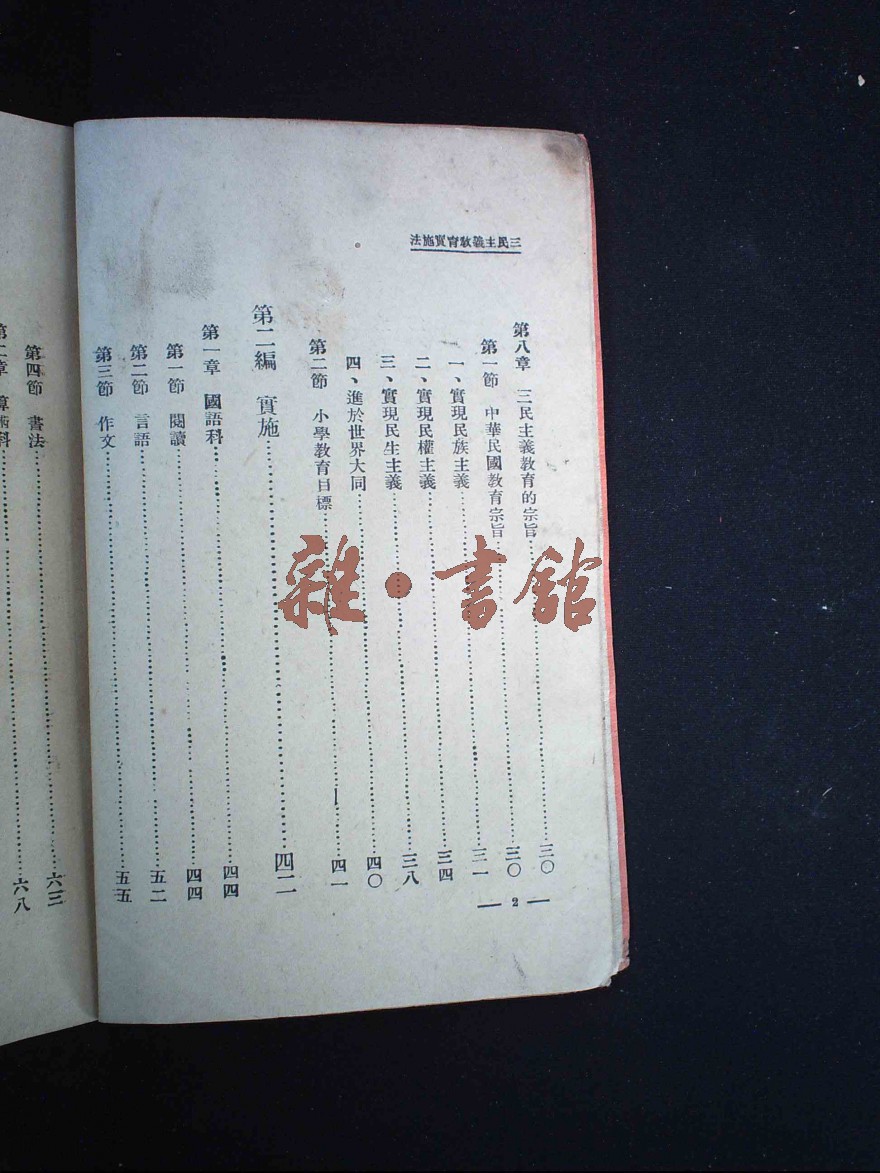 三民主義教育實施法
第八章 三民主義教育的宗旨 三〇
第一節 中華民國教育宗旨 三〇
一、實現民族主義 三一
二、實現民權主義 三四
三、實現民生主義 三八
四、進於世界大同 四〇
第二節 小學教育目標 四一
第二編 實施 四二
第一章 國語科 四四
第一節 閱讀 四四
第二節 言語 五二
第三節 作文 五五
— 2 —
第四節 書法 六三
第二章 算術科 六八
雜·書館